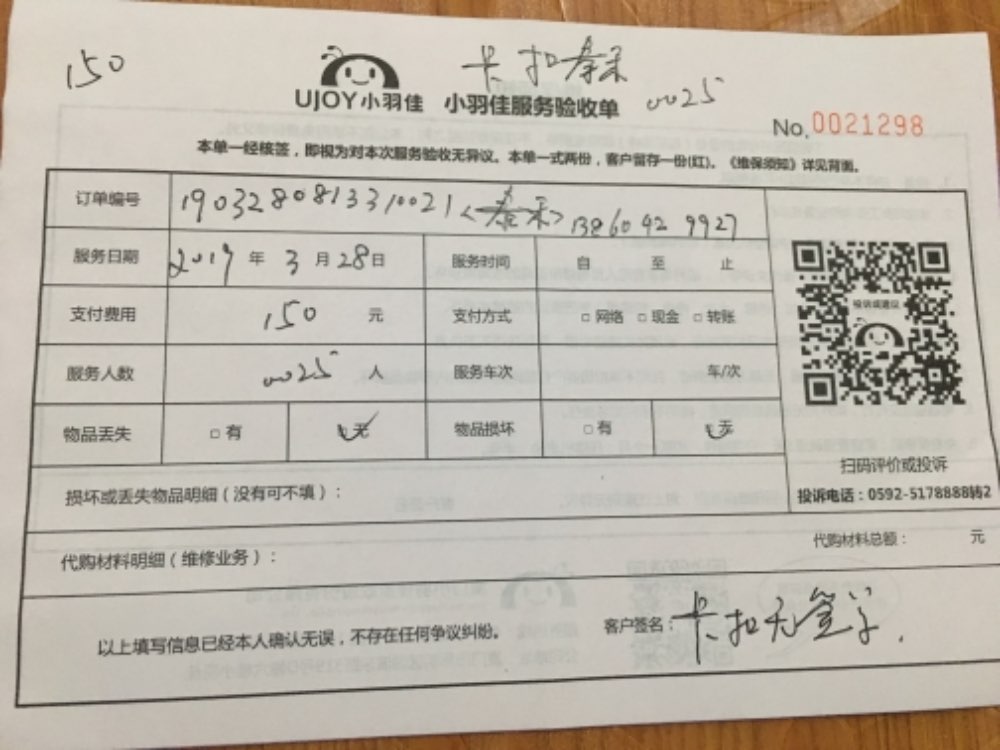 150
卡扣泰禾
UJOY小羽佳 小羽佳服务验收单 0025
No. 0021298
本单一经核签，即视为对本次服务验收无异议。本单一式两份，客户留存一份(红)。《维保须知》详见背面。
订单编号 1903280813310021<泰禾> 13860429927
服务日期 2019年3月28日 服务时间 自 至 止
支付费用 150 元 支付方式 □网络 □现金 □转账
服务人数 0025 人 服务车次 车/次
物品丢失 □有 ☑无 物品损坏 □有 ☑无
投诉或建议
扫码评价或投诉
投诉电话：0592-5178888转2
损坏或丢失物品明细（没有可不填）：
代购材料明细（维修业务）： 代购材料总额： 元
以上填写信息已经本人确认无误，不存在任何争议纠纷。 客户签名：卡扣无签字.